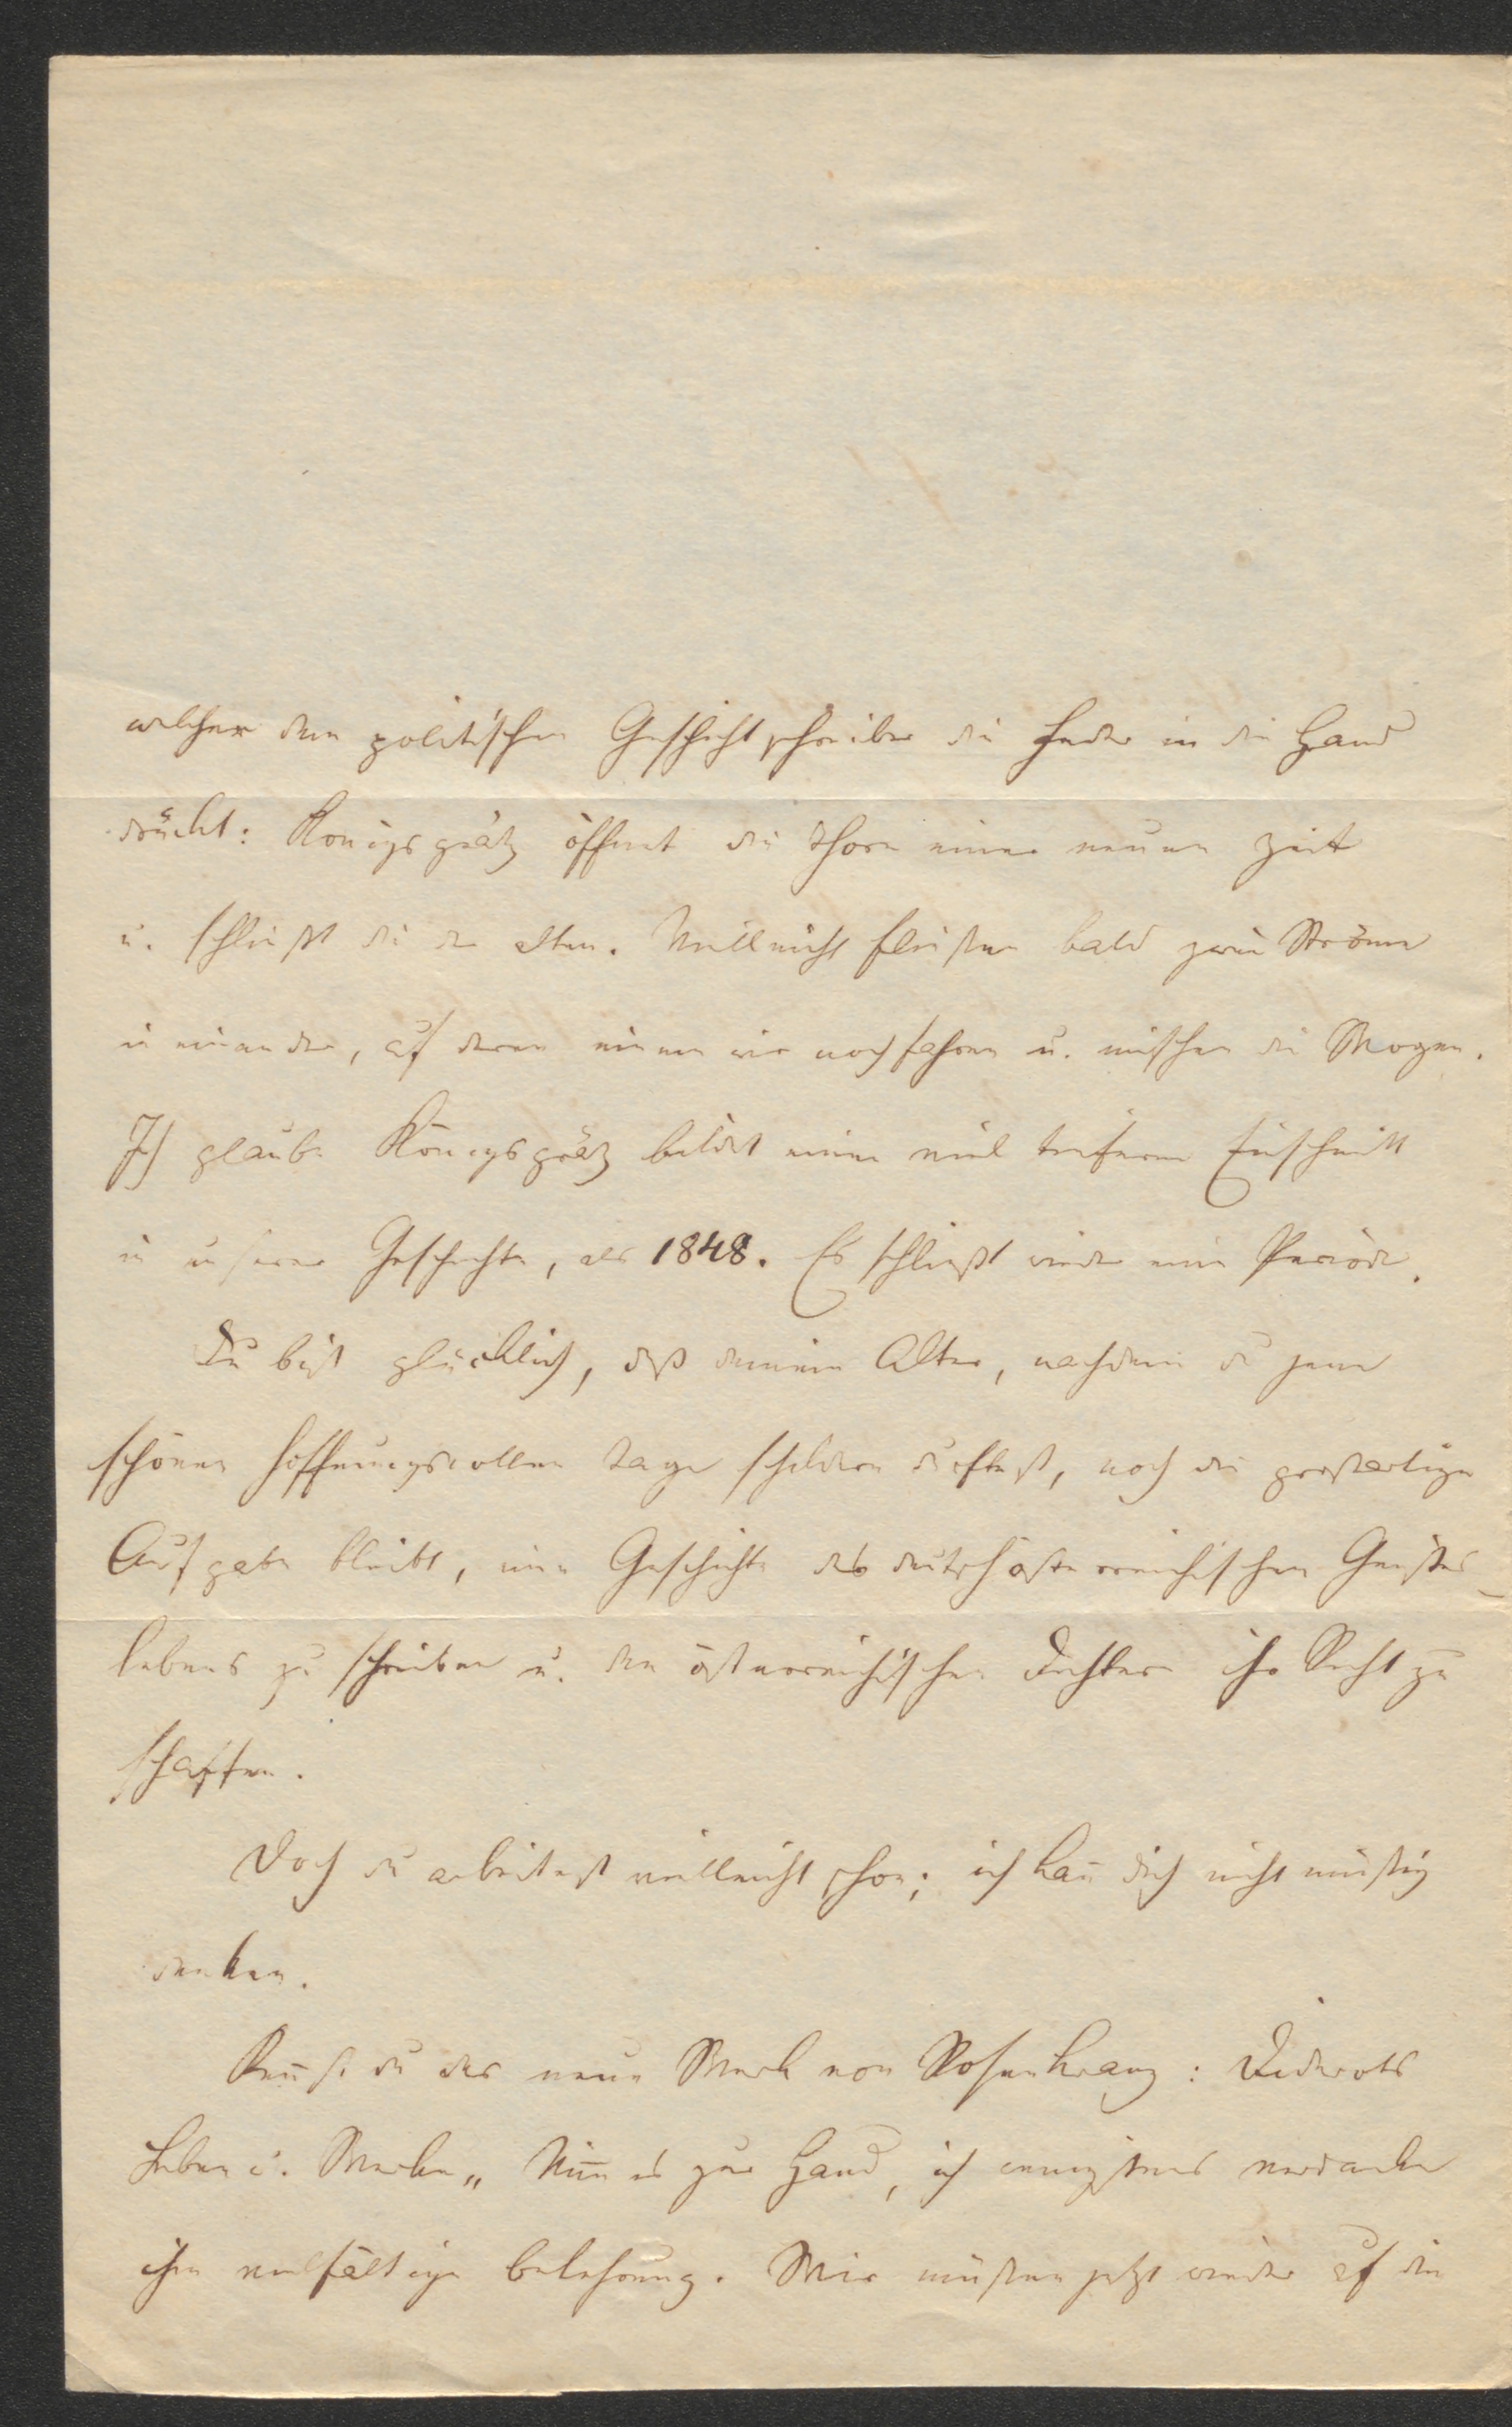 welcher dem politischen Geschichtschreiber die Feder in die Hand
drückt: Königsgrätz öffnet die Thore einer neuen Zeit
u. schließt die der alten. Vielleicht fließen bald zwei Ströme
in einander, auf deren einem wir noch fahren u. mischen die Wogen.
Ich glaube Königsgrätz bildet einen viel tieferen Einschnitt
in unserer Geschichte, als 1848. Es schließt wieder eine Periode.
Du bist glücklich, daß deinem Alter, nachdem du jene
schönen hoffnungsvollen Tage schildern durftest, noch die großartige
Aufgabe bleibt, eine Geschichte des deutschösterreichischen Geistes-
lebens zu schreiben u. den österreichischen Dichtern ihr Recht zu
schaffen.
Doch du arbeitest vielleicht schon; ich kan̅ dich nicht müßig
denken.
Ken̅st du das neue Werk von Rosenkranz: Diderots
Leben u. Werke„ Nim̅ es zur Hand, ich wenigstens verdanke
ihm vielfältige Belehrung. Wir müßen jetzt wieder auf die